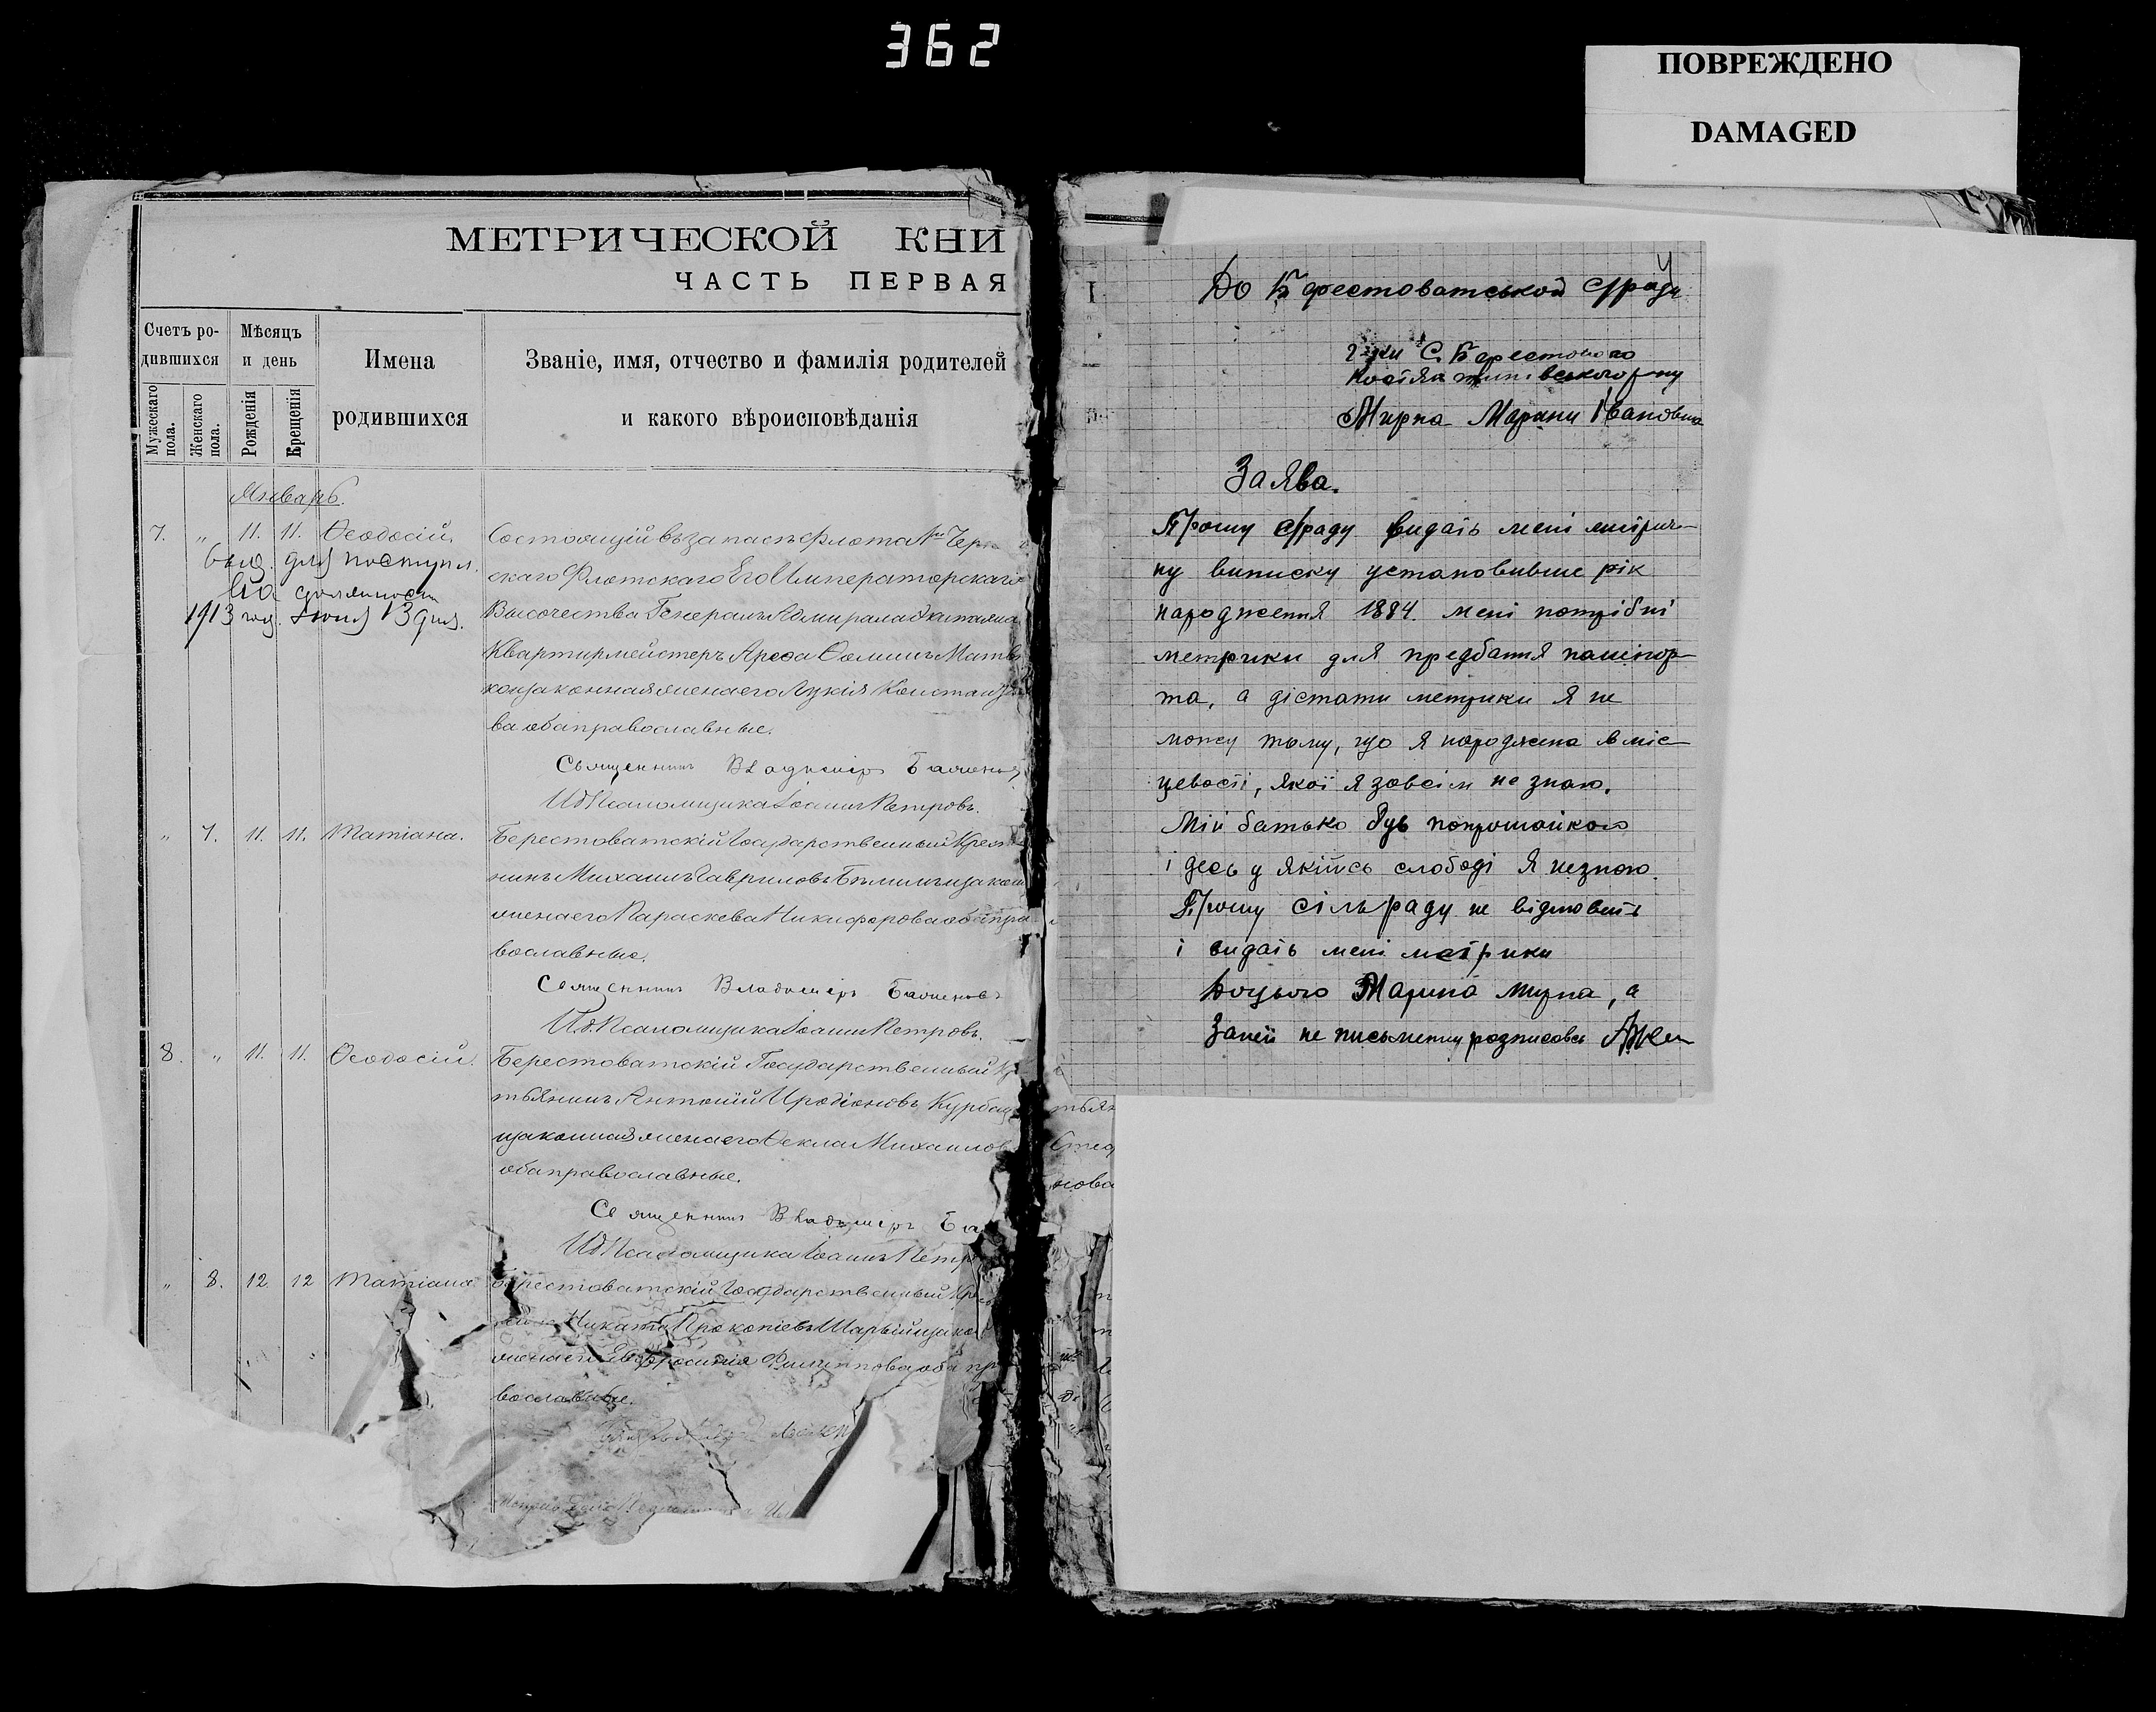 362
ПОВРЕЖДЕНО
DAMAGED
МЕТРИЧЕСКОЙ КНИ
ЧАСТЬ ПЕРВАЯ
Счетъ ро-
дившихся
Мужескаго пола.
Женскаго пола.
Мѣсяцъ
и день
Рожденія
Крещенія
Имена
родившихся
Званіе, имя, отчество и фамилія родителей
и какого вѣроисповѣданія
Январь.
7. „ 11. 11. Ѳеодосій.
выд. для поступл.
на
1913 год. 13 дня.
Состоящій въ запасѣ флота
скаго Флотскаго Его Императорскаго
Высочества Генералъ Адмирала экипажа
Квартирмейстеръ Ареѳа Ѳоминъ
законная жена его Лукія
ва оба православные.
Священникъ Владиміръ
И.д. Псаломщика Іоаннъ Петровъ.
„ 7. 11. 11. Татіана.
Берестоватскій Государственный Крест
нинъ Михаилъ Гавриловъ и закон
жена его Параскева Никифорова оба пра
вославные.
Священникъ Владиміръ
И.д. Псаломщика Іоаннъ Петровъ.
8. „ 11. 11. Ѳеодосій.
Берестоватскій Государственный Кр
тьянинъ Антоній Иродіоновъ
и законная жена его Ѳекла Михайлов
оба православные.
Священникъ Владиміръ Ба
И.д. Псаломщика Іоаннъ Петр
„ 8. 12 12 Татіана
Берестоватскій Государственный Крес
Никита Прокопіевъ и зако
жена его Евфросинія Филиппова оба пр
вославные.
До Берестоватської с/ради
г-ки С. Берестового
Костянтинівського р-ну
Мирна Марини Івановна
Заява.
Прошу с/раду видать мені метрич-
ну виписку установивше рік
народження 1884. мені потрібні
метрики для предбання пашпор-
та, а дістати метрики я не
можу тому, що я народжена в міс-
цевості, якої я зовсім не знаю.
Мій батько був попрошайкою
і десь у якійсь слободі я незнаю.
Прошу сільраду не відмовить
і видать мені метрики
До цього Марина Мирна, а
За неї не письменну розписавсь
тьян
нова